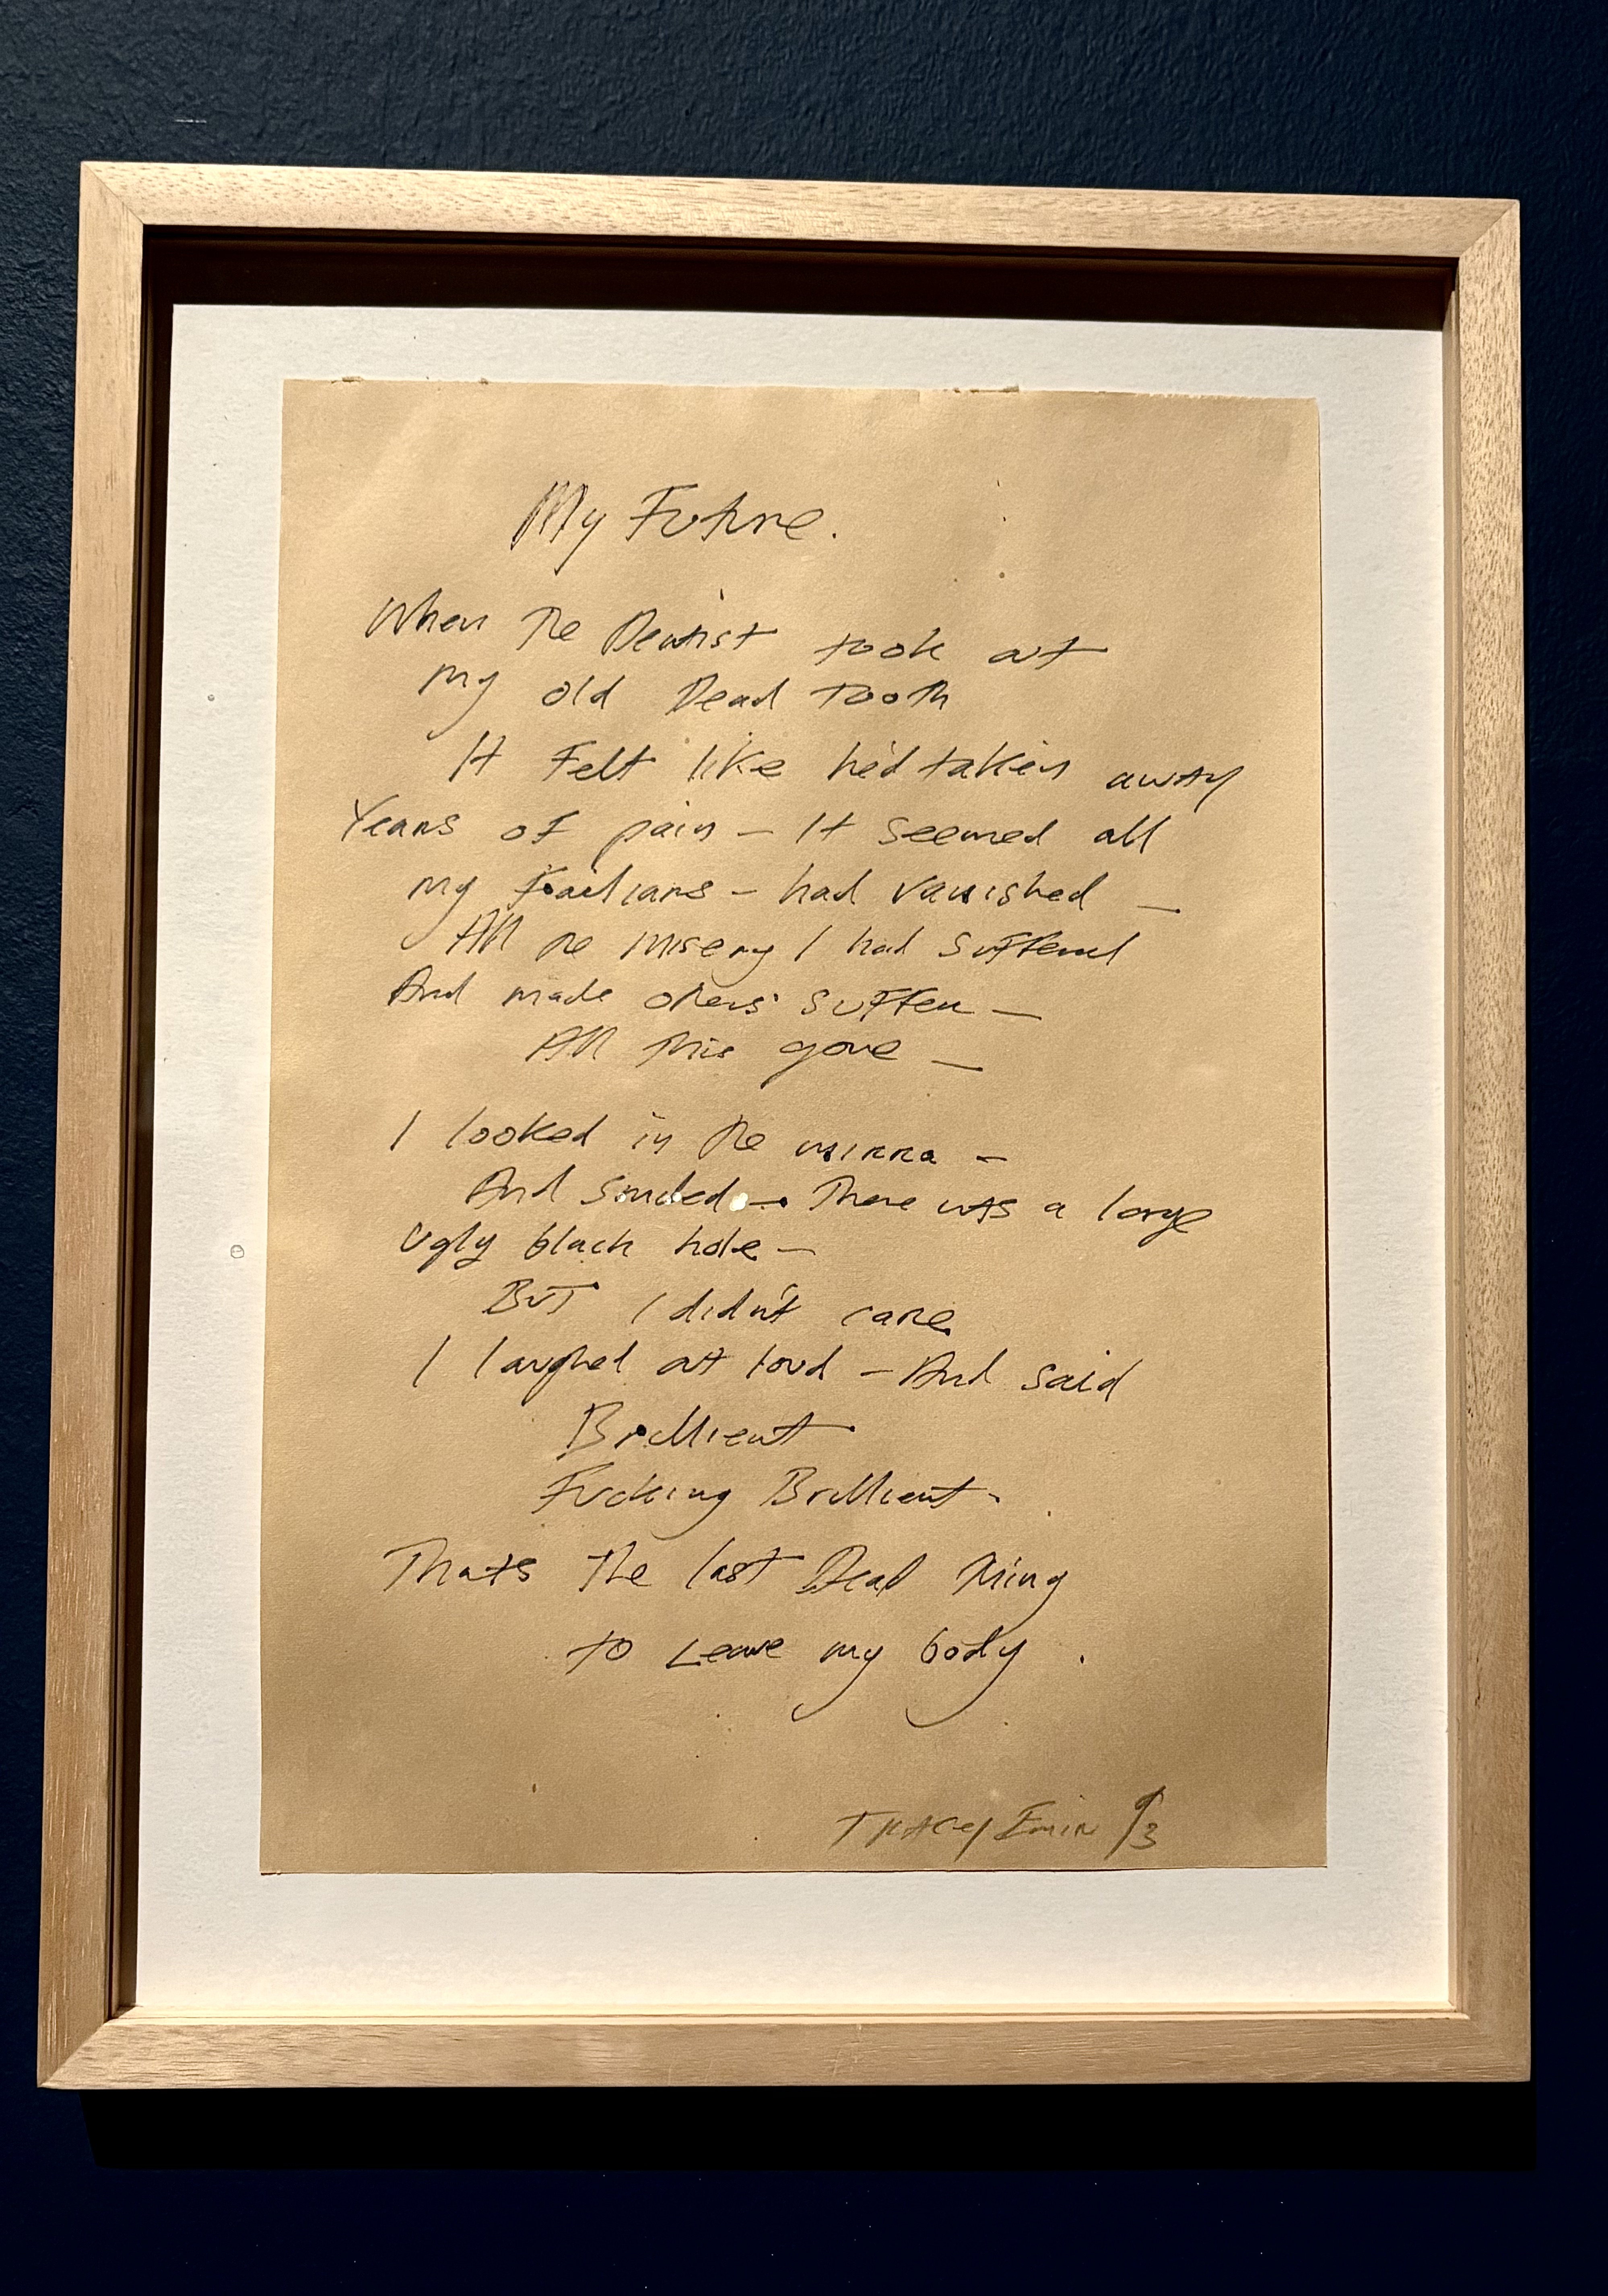 My Future.
When The Dentist took out
my old Dead Tooth
It Felt like he'd taken away
Years of pain – It seemed all
my Failians – had vanished –
All the misery I had suffered
And made others suffer –
All this gone –
I looked in The mirra –
And smiled – There was a large
Ugly black hole –
BuT I didn't care
I laughed out loud – And said
Brillient
Fucking Brillient –
Thats The last Dead Thing
to Leave my body .
Tracey Emin 93